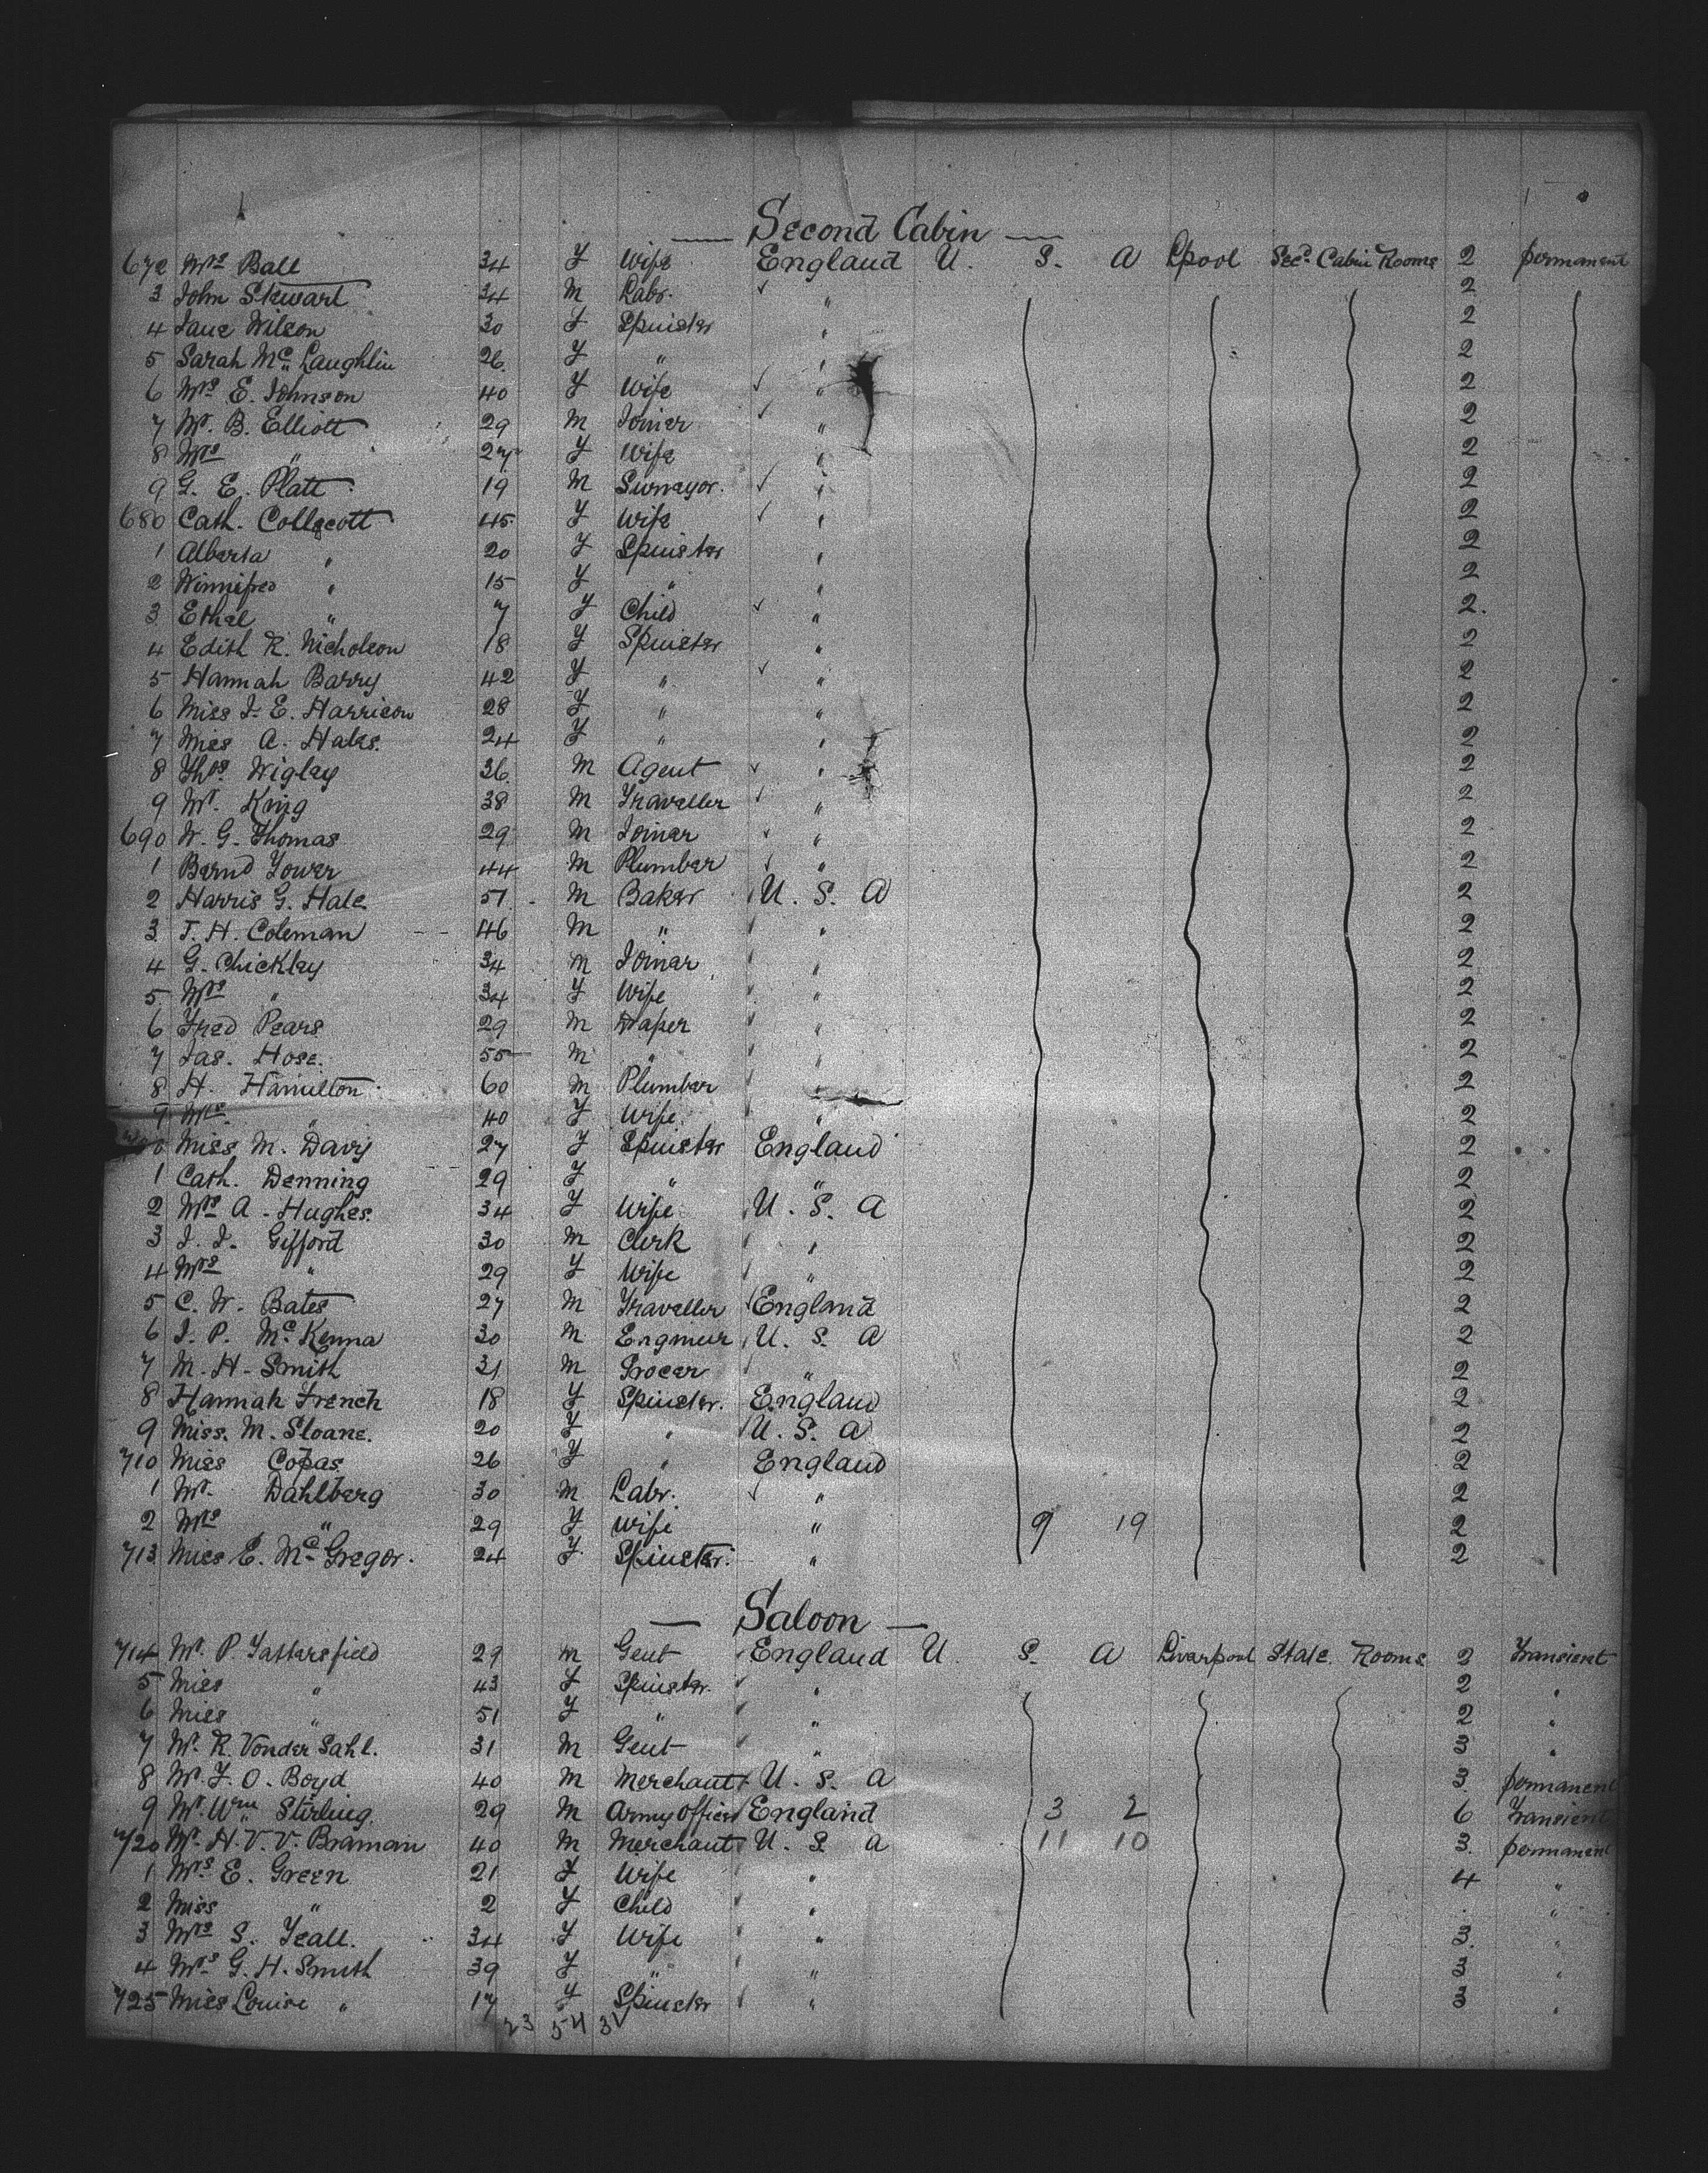 Second Cabin
672 Mrs Ball 34 F Wife England U. S. A Lpool Secd Cabin Rooms 2 permanent
3 John Stewart 34 M Labr. " 2
4 Jane Wilson 30 F Spinster " 2
5 Sarah McLaughlin 26 F " " 2
6 Mrs E. Johnson 40 F Wife " 2
7 Mr. B. Elliott 29 M Joiner " 2
8 Mrs " 27 F Wife " 2
9 G. E. Platt 19 M Surveyor. " 2
680 Cath. Collacott 45 F Wife " 2
1 Alberta " 20 F Spinster " 2
2 Winnifred " 15 F " " 2
3 Ethel " 7 F Child " 2.
4 Edith R. Nicholson 18 F Spinster " 2
5 Hannah Barry 42 F " " 2
6 Miss J. E. Harrison 28 F " " 2
7 Miss A. Hales. 24 F " " 2
8 Thos. Wigley 36 M Agent " 2
9 Mr. King 38 M Traveller " 2
690 W. G. Thomas 29 M Joiner " 2
1 Bernd Lower 44 M Plumber " 2
2 Harris G. Hale 51 M Baker U. S. A 2
3 T. H. Coleman 46 M " " 2
4 G. Chickley 34 M Joiner " 2
5 Mrs " 34 F Wife " 2
6 Fred Pears 29 M Draper " 2
7 Jas. Hose. 55 M " " 2
8 H. Hamilton 60 M Plumber " 2
9 Mrs " 40 F Wife " 2
Miss M. Davy 27 F Spinster England 2
1 Cath. Denning 29 F " " 2
2 Mrs A. Hughes. 34 F Wife U. S. A 2
3 J. J. Gifford 30 M Clerk " 2
4 Mrs " 29 F Wife " 2
5 C. W. Bates 27 M Traveller England 2
6 J. P. McKenna 30 M Engineer U. S. A 2
7 M. H. Smith 31 M Grocer " 2
8 Hannah French 18 F Spinster. England 2
9 Miss. M. Sloane. 20 F " U. S. A 2
710 Miss Copas 26 F " England 2
1 Mr. Dahlberg 30 M Labr. " 2
2 Mrs " 29 F Wife " 9 19 2
713 Miss E. McGregor. 24 F Spinster. " 2
Saloon
714 Mr. P. Tattersfield 29 M Gent England U. S. A Liverpool State Rooms 2 Transient
5 Miss " 43 F Spinster. " 2 "
6 Miss " 51 F " " 2 "
7 Mr. R. Vonder Sahl. 31 M Gent " 3 "
8 Mr. F. O. Boyd 40 M Merchant U. S. A 3 permanent
9 Mr. Wm Stirling. 29 M Army Officer England 3 2 6 Transient
720 Mr. H. V. V. Braman 40 M Merchant U. S. A 11 10 3. permanent
1 Mrs E. Green 21 F Wife " 4 "
2 Miss " 2 F Child " . "
3 Mrs S. Teall. 34 F Wife " 3. "
4 Mrs G. H. Smith 39 F " " 3 "
725 Miss Louise " 17 F Spinster " 3 "
23 54 31